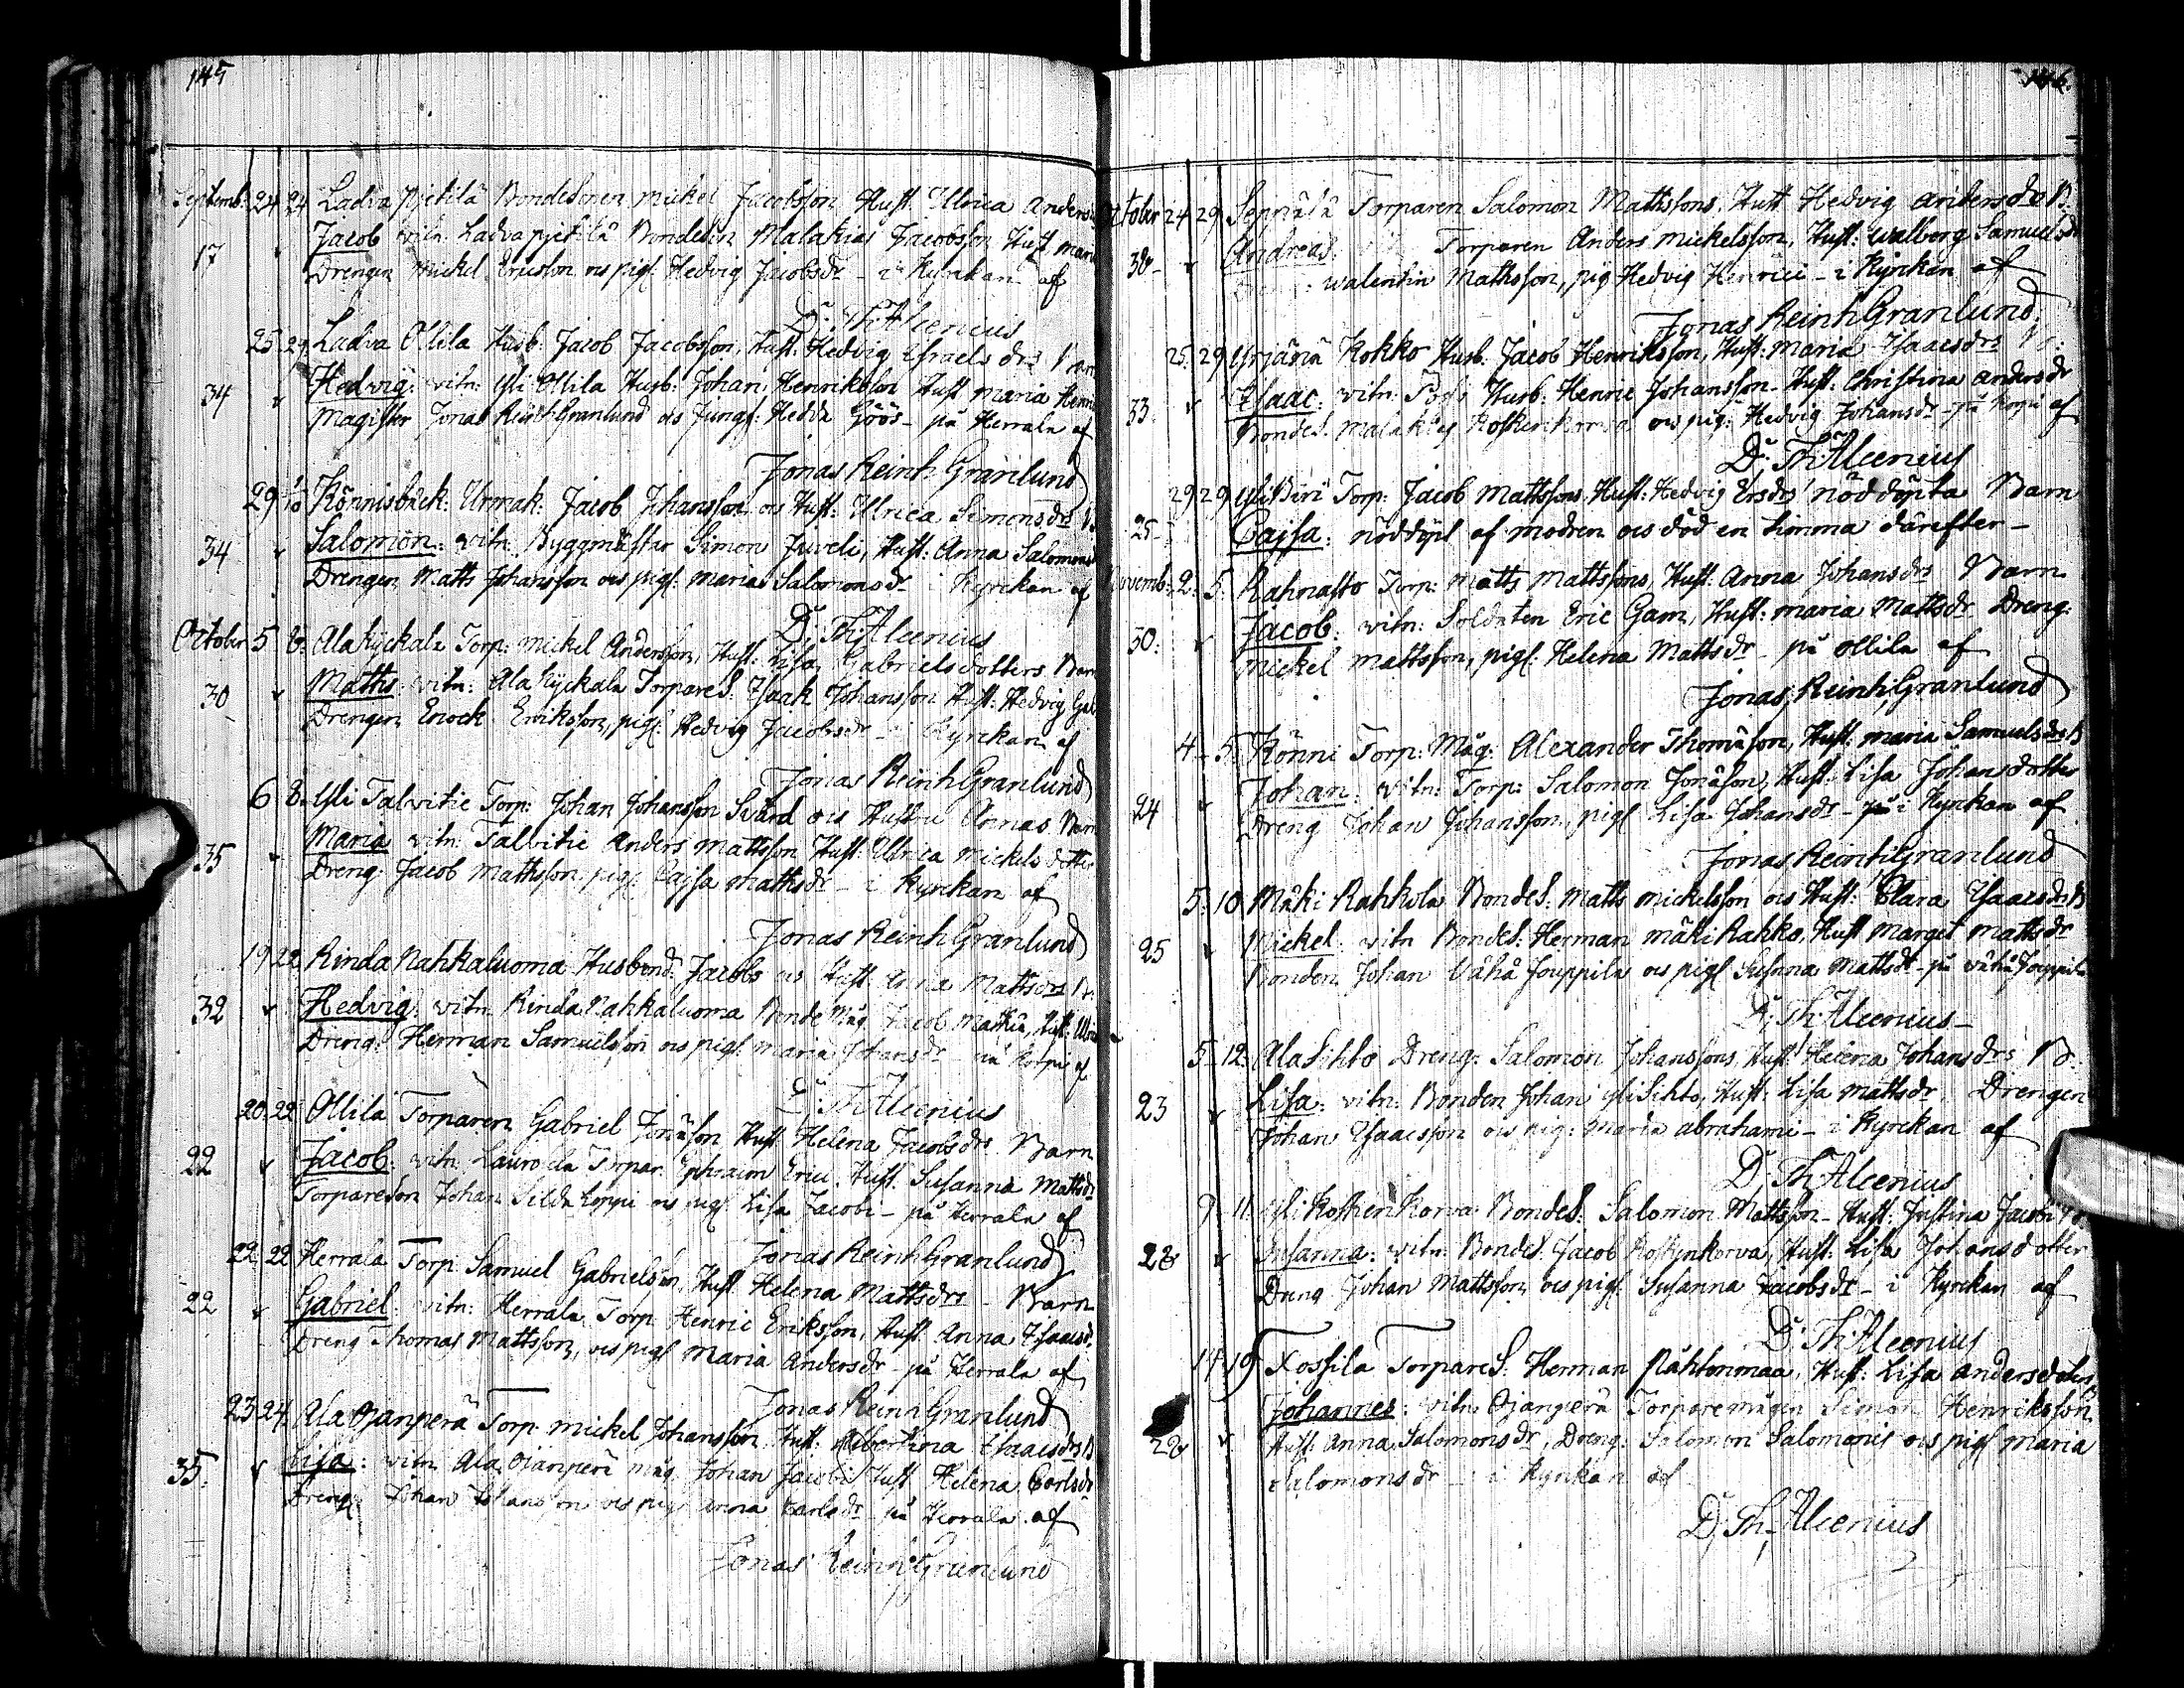 145
Septemb: 24 24 Ladva Pjetilä Bondesonen Mickel Jacobsson Hust. Ullrica Anders
17 Jacob witn: Ladvapjetilä Bondesn Malakias Jacobsson Hust Maria
Drengen Mickel Ericsson ocs pigs Hedvig Jacobsdr - i Kyrckan af
D: Th: Alcenius
25 29 Ladva Ollila Husb: Jacob Jacobsson, Hust. Hedvig Israels drs Barn
34 Hedvig: witn: Yli Ollila Husb: Johan Henriksson Hust Maria Henri
Magister Jonas Reinh Granlund ocs Jungf: Hedda Höös - på Herrala af
Jonas Reinh Granlund
29 1/10 Könnisbäck: Urmak: Jacob Johansson ocs Hust: Ulrica Simonsdrs B.
34 Salomon: witn: Byggmästar Simon Juveli, Hust: Anna Salomons
Drengen Matts Johansson ocs pigs: Maria Salomonsdr i Kyrckan af
D: Th: Alcenius
October 5 8 Ala Kyckala Torp: Mickel Andersson, Hust: Lisa Gabrielsdotters Barn
30 Matths: witn: Ala Kyckala TorpareS: Isaak Johansson Hust: Hedvig Gab
Drengen Enock Eriksson, pigs: Hedvig Jacobsdr - i Kyrckan af
Jonas Reinh Granlund
6 8 Yli Talvitie Torp: Johan Johansson Svärd ocs Hustru Annas Barn
35 Maria witn: Talvitie Anders Mattsson Hust: Ullrica Mickelsdotter
Dreng: Jacob Mathsson pigs Cajsa Mathsdr - i Kyrckan af
Jonas Reinh Granlund
19 22 Rinda Nahkaluoma Husbond: Jacobs ocs Hust: Anna Mattsdrs B.
32 Hedvig: witn: Rinda Nahkaluoma Bonde Måg Jacob Hust: Ulrica
Dreng: Herman Samuelsson ocs pigs: Maria Johansdr på af
D: Th: Alcenius
20 22 Ollila Torparen Gabriel Jonasson Hust Helena Jacobsdrs Barn
22 Jacob: witn: Laurola Torpar: Ephraim Erici, Hust. Susanna Mattsdr
Torpareson Johan ocs pigs Lisa Jacobi - på Herrala af
Jonas Reinh Granlund
22 22 Herrala Torp: Samuel Gabrielsson, Hust Helena Mattsdrs - Barn
22 Gabriel: witn: Herrala Torp Henric Eriksson, Hust. Anna Isaacsd.
Dreng Thomas Mattsson, ocs pigs Maria Andersdr - på Herrala af
Jonas Reinh Granlund
23 24 Ala Ojanperä Torp: Mickel Johansson Hust: Albertina Isaacsdrs B
35. Lisa: witn: Ala Ojanperä måg Johan Jacobi Hust Helena Carlsdr
Dreng: Johan Johansson ocs pigs Anna Carlsdr - på Herrala af
Jonas Reinh Granlund
146.
October 24 29 Seppälä Torparen Salomon Mathssons, Hust Hedvig Andersdrs B.
30 Andreas. Torparen Anders Mickelsson, Hust: Walberg Samuelsdr
Walentin Mathsson, pig Hedvig Henrici - i Kyrckan af
Jonas Reinh Granlund
25. 29 Yrjänä Kokko Husb: Jacob Henriksson, Hust: Maria Isaacsdrs B:
33. Isaac: witn: Husb: Henric Johansson - Hust: Christina Andersdr
Bondes. Malakias Koskenkorva ocs pig: Hedvig Johansdr - på af
D: Th: Alcenius
29 29 Torp: Jacob Mattssons Hust: Hedvig Ersdrs nöddöpta Barn
25 - Cajsa: nöddöpt af modren ocs död en timma därefter -
Novemb: 2. 5. Rahnasto Torp: Matts Mattssons, Hust: Anna Johansdrs Barn
30: Jacob: witn: Soldaten Eric Gam, Hust: Maria Mattsdr Dreng:
Mickel Mattsson, pigs: Helena Mattsdr på Ollila af
Jonas Reinh: Granlund
4 - 5. Könni Torp: Måg: Alexander Thomason, Hust: Maria Samuelsdrs B
24 Johan: witn: Torp: Salomon Jonasson, Hust: Lisa Johansdotter
Dreng Johan Johansson, pigs Lisa Johansdr - på i Kyrckan af
Jonas Reinh: Granlund
5. 10 Mäki Rahkola BondeS: Matts Mickelsson ocs Hust: Clara Isaacsdrs B
25 Mickel. witn Bondes: Herman Mäki Rahko, Hust Marget Mattsdr
Bonden Johan Vähä Jouppila ocs pigs Susanna Mattsdr - på Vähä Jouppila
D: Th: Alcenius -
5 - 12. Ala Sihto Dreng: Salomon Johanssons, Hust: Helena Johansdrs B.
23 Lisa: witn: Bonden Johan Yli Sihto, Hust: Lisa Mattsdr. Drengen
Johan Isaacsson ocs pig: Maria Abrahami - i Kyrckan af
D: Th: Alcenius
9 11 Yli Koskenkorva BondeS: Salomon Mattsson - Hust: Justina Jacobi
28 Susanna: witn: Bondes. Jacob Koskenkorva, Hust: Lisa Johansdotter
Dreng Johan Mattsson, ocs pigs: Susanna Jacobsdr - i Kyrckan af
D: Th: Alcenius
14 19 Fossila TorpareS: Herman Nähtenmaa, Hust: Lisa Andersdotters
28 Johannes: witn: Ojanperä Torparemågen Simon Henriksson
Hust: Anna Salomonsdr, Dreng: Salomon Salomonis ocs pigs Maria
Salomonsdr - i Kyrckan af
D: Th: Alcenius